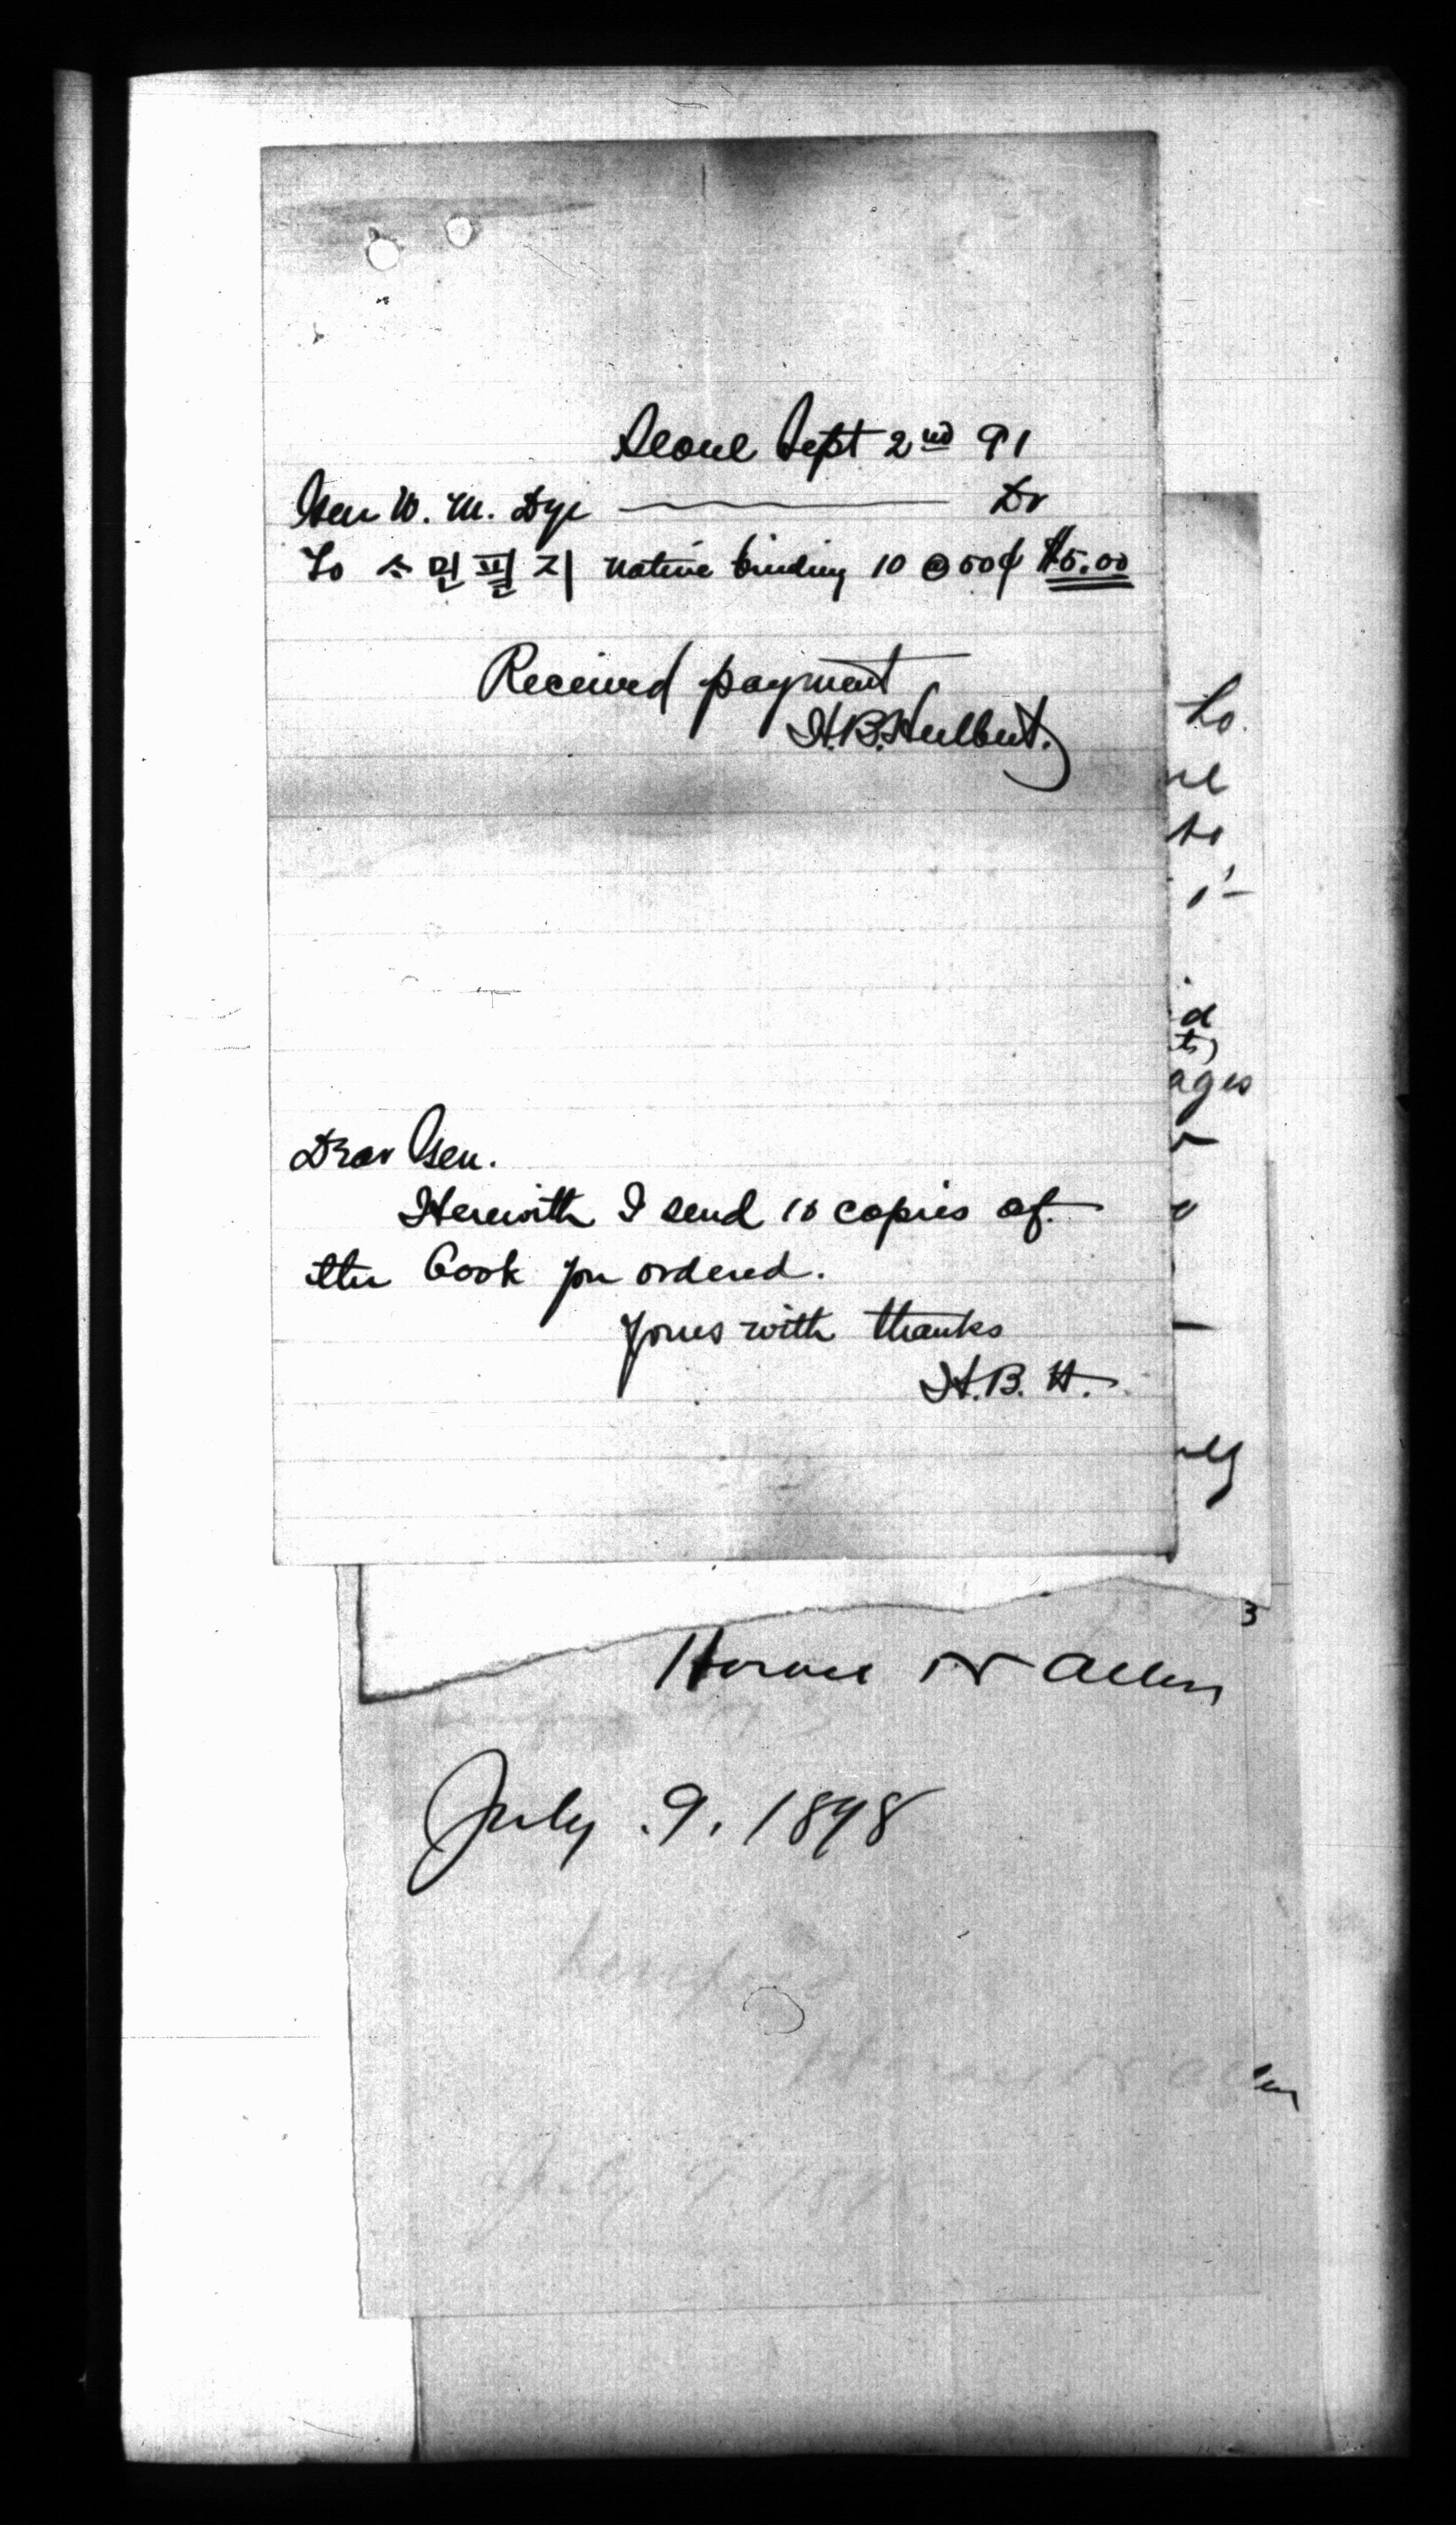 Seoul Sept 2nd 91
Gen W. M. Dye Dr
To ᄉᆞ민필지 native binding 10 @ 50¢ $5.00
Received payment
H.B. Hulbert.
Dear Gen.
Herewith I send 10 copies of
the book you ordered.
Yours with thanks
H. B. H.
ages
3
Horace N Allen
July .9. 1898
July 9 1898